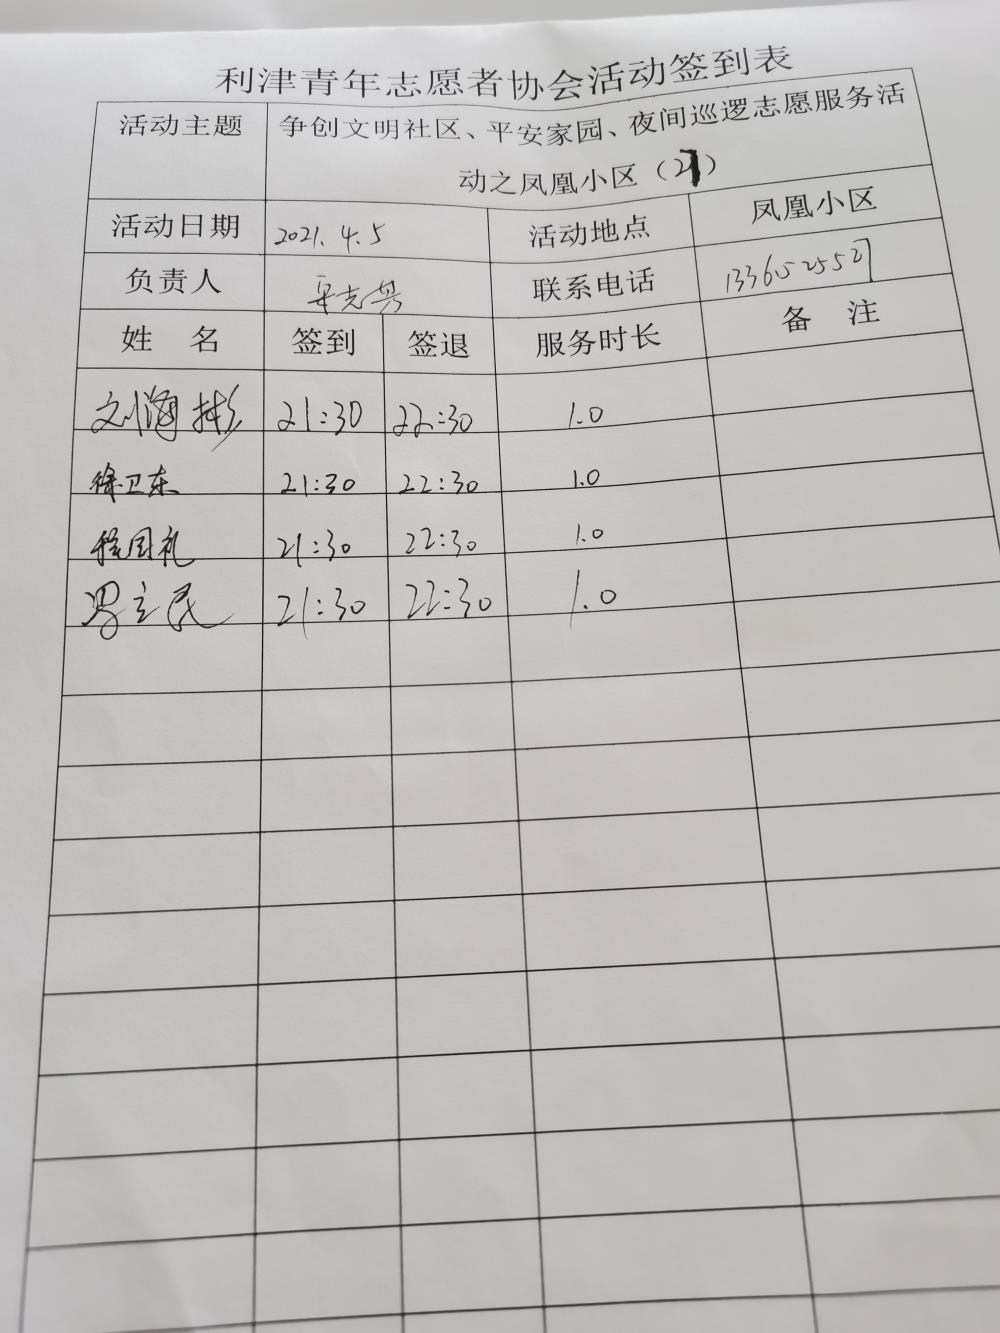 利津青年志愿者协会活动签到表
活动主题 争创文明社区、平安家园、夜间巡逻志愿服务活
动之凤凰小区（21）
活动日期 2021.4.5 活动地点 凤凰小区
负责人 联系电话 1336525527
姓 名 签到 签退 服务时长 备 注
刘海彬 21:30 22:30 1.0
徐卫东 21:30 22:30 1.0
程国礼 21:30 22:30 1.0
冯立民 21:30 22:30 1.0